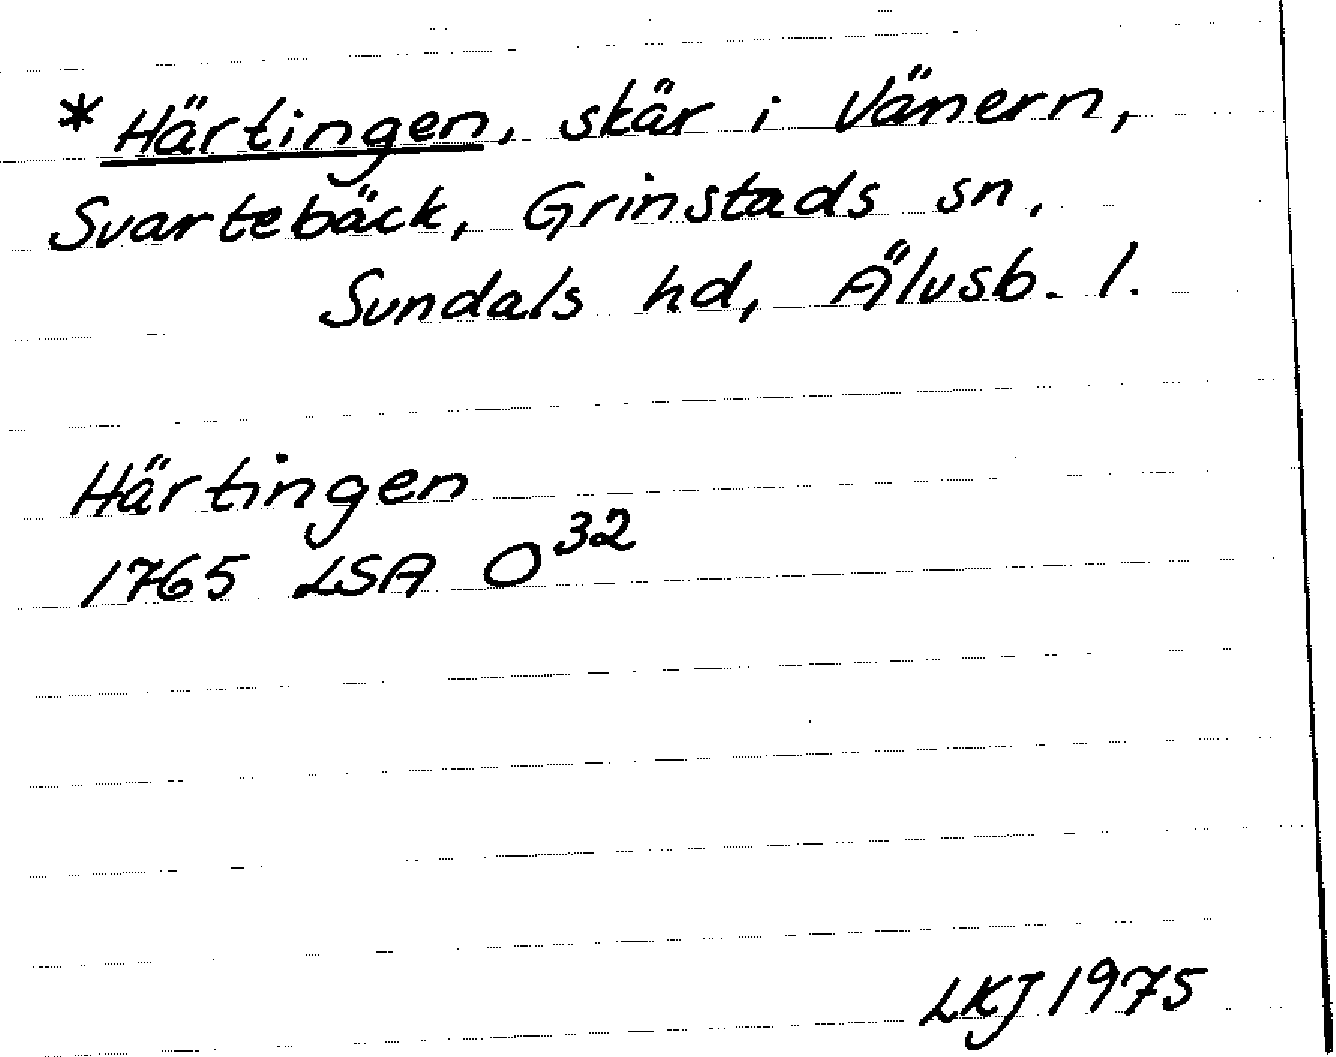 * Härtingen, skär i Vänern,
Svartebäck, Grinstads sn,
Sundals hd, Älvsb. l.
Härtingen
1765 LSA O³²
LKJ 1975